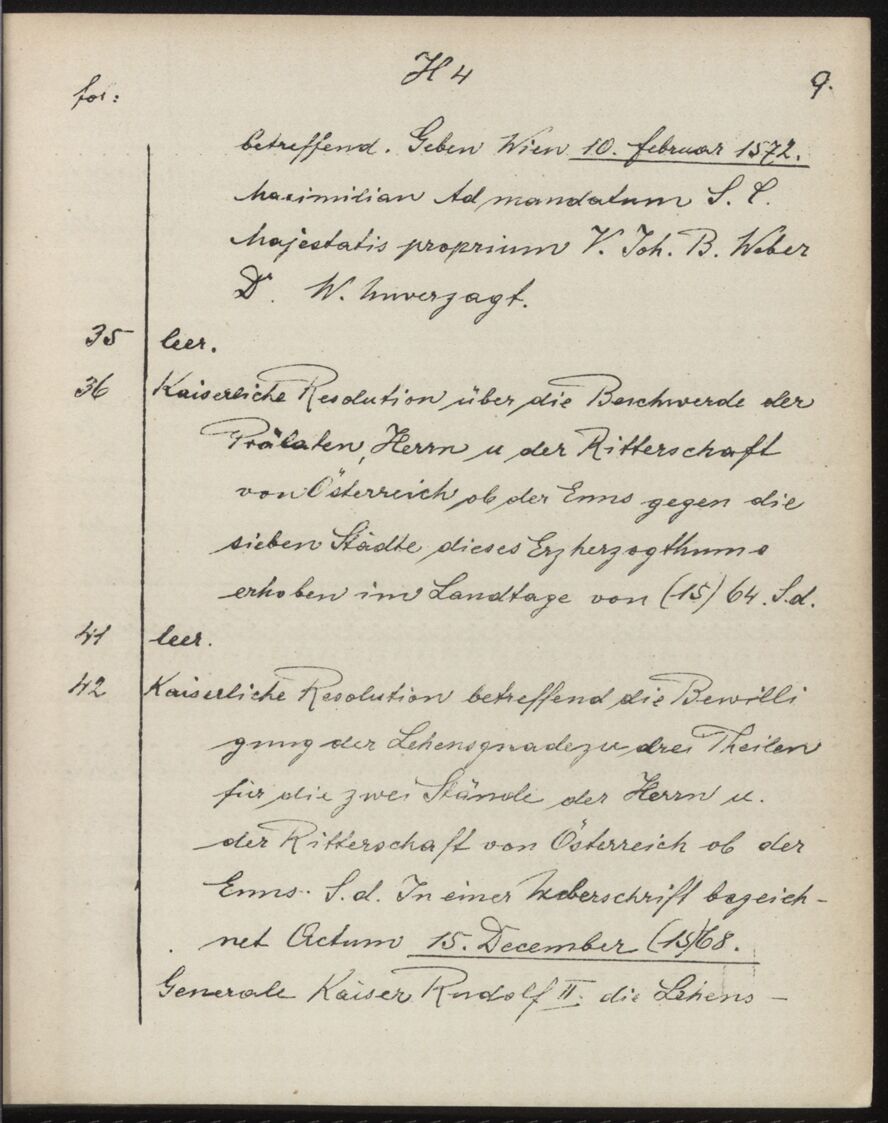 H 4
9.
fol:
betreffend. Geben Wien 10. februar 1572.
Maximilian Ad mandatum S. C.
Majestatis proprium V. Joh. B. Weber
Dr. W. Unverzagt.
35 leer.
36 Kaiserliche Resolution über die Beschwerde der
Prälaten, Herrn u der Ritterschaft
von Österreich ob der Enns gegen die
sieben Städte dieses Erzherzogthums
erhoben im Landtage von (15)64. S.d.
41 leer.
42 Kaiserliche Resolution betreffend die Bewilli
gung der Lehensgnade zu drei Theilen
für die zwei Stände der Herrn u.
der Ritterschaft von Österreich ob der
Enns. S.d. In einer Ueberschrift bezeich-
net Actum 15. December (15)68.
Generale Kaiser Rudolf II. die Lehens-